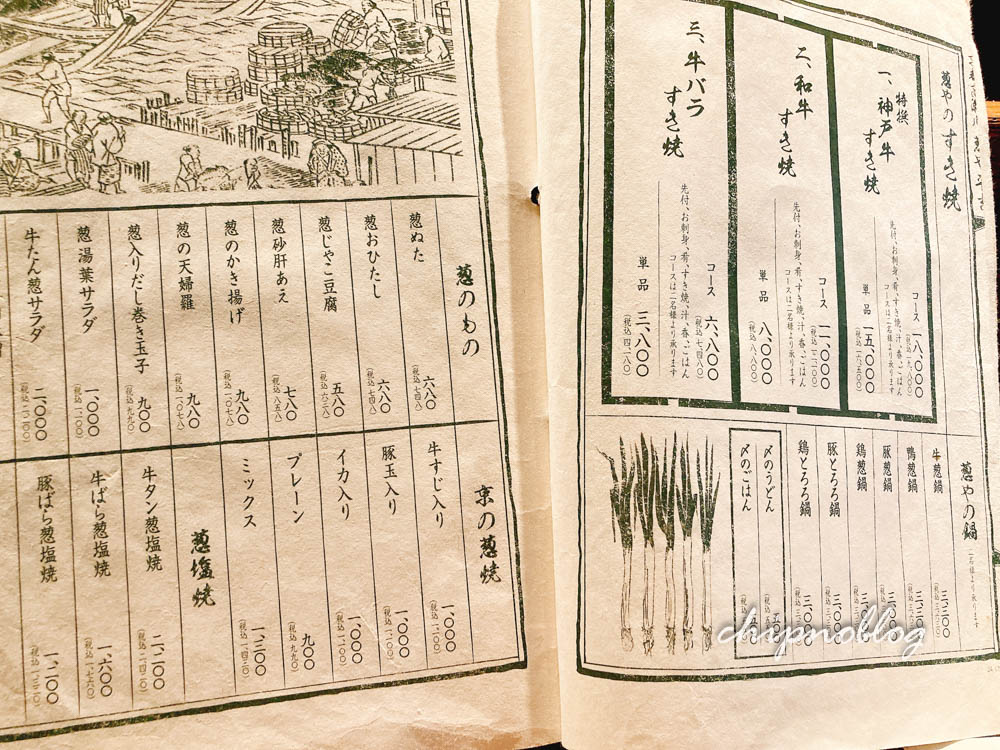 葱やのすき焼
特撰
一、神戸牛
すき焼
先付、お刺身、肴、すき焼、汁、香、ごはん
コースは二名様より承ります
コース 一八、〇〇〇
(税込 一九、八〇〇)
単品 一五、〇〇〇
(税込 一六、五〇〇)
二、和牛
すき焼
先付、お刺身、肴、すき焼、汁、香、ごはん
コースは二名様より承ります
コース 一一、〇〇〇
(税込 一二、一〇〇)
単品 八、〇〇〇
(税込 八、八〇〇)
三、牛バラ
すき焼
先付、お刺身、肴、すき焼、汁、香、ごはん
コースは二名様より承ります
コース 六、八〇〇
(税込 七、四八〇)
単品 三、八〇〇
(税込 四、一八〇)
葱やの鍋 二名様より承ります
牛葱鍋
鴨葱鍋
豚葱鍋
鶏葱鍋
豚とろろ鍋
鶏とろろ鍋
〆のうどん
〆のごはん
葱のもの
葱ぬた 六八〇
(税込 七四八)
葱おひたし 六八〇
(税込 七四八)
葱じゃこ豆腐 五八〇
(税込 六三八)
葱砂肝あえ 七八〇
(税込 八五八)
葱のかき揚げ 九八〇
(税込 一、〇七八)
葱の天婦羅 九八〇
(税込 一、〇七八)
葱入りだし巻き玉子 九〇〇
(税込 九九〇)
葱湯葉サラダ 一、〇〇〇
(税込 一、一〇〇)
牛たん葱サラダ 二、〇〇〇
(税込 二、二〇〇)
京の葱焼
牛すじ入り 一、〇〇〇
(税込 一、一〇〇)
豚玉入り 一、〇〇〇
(税込 一、一〇〇)
イカ入り 一、〇〇〇
(税込 一、一〇〇)
プレーン 九〇〇
(税込 九九〇)
ミックス 一、三〇〇
(税込 一、四三〇)
葱塩焼
牛タン葱塩焼 二、二〇〇
(税込 二、四二〇)
牛ばら葱塩焼 一、六〇〇
(税込 一、七六〇)
豚ばら葱塩焼 一、二〇〇
(税込 一、三二〇)
chipnoblog